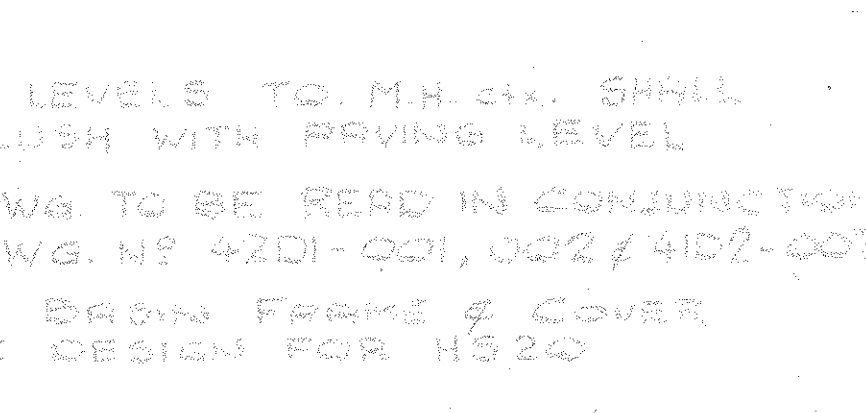 LEVELS TO M.H. etc. SHALL
LUSH WITH PAVING LEVEL
WG. TO BE READ IN CONJUNCTION
WG. Nº 42D1-001, 002 & 41D2-00
BASIN FRAME & COVER
DESIGN FOR HS20